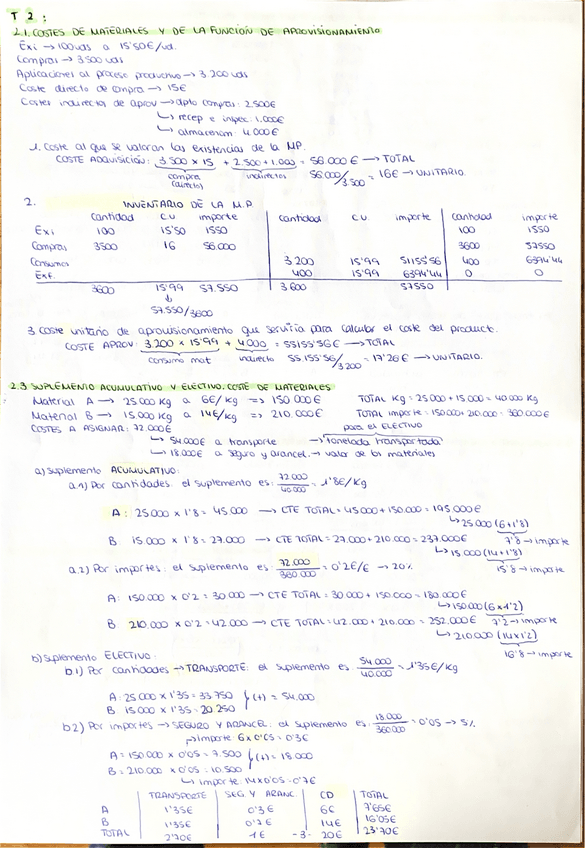 T 2 :
2.1. COSTES DE MATERIALES Y DE LA FUNCIÓN DE APROVISIONAMIENTO
Exi → 100 uds a 15'50€/ud.
Compras → 3500 uds
Aplicaciones al proceso productivo → 3.200 uds
Coste directo de compra → 15€
Costes indirectos de aprov → dpto compras: 2.500€
↳ recep e inpec: 1.000€
↳ almacenam: 4.000€
1. Coste al que se valoran las existencias de la MP.
COSTE ADQUISICIÓN: 3.500 x 15 + 2.500 + 1.000 = 56.000 € → TOTAL
compra (directos) indirectos 56.000/3.500 = 16€ → UNITARIO.
2. INVENTARIO DE LA M.P.
Cantidad c.u importe cantidad c.u. importe cantidad importe
Exi 100 15'50 1550 100 1550
Compras 3500 16 56.000 3600 57550
Consumos 3.200 15'99 51155'56 400 6394'44
Exf. 400 15'99 6394'44 0 0
3600 15'99 57.550 3.600 57550
↓
57.550/3600
3. Coste unitario de aprovisionamiento que serviría para calcular el coste del product.
COSTE APROV: 3.200 x 15'99 + 4000 = 55155'56€ → TOTAL
consumo mat indirecto 55.155'56/3.200 = 17'26€ → UNITARIO.
2.3 SUPLEMENTO ACUMULATIVO Y ELECTIVO. COSTE DE MATERIALES
Material A → 25.000 Kg a 6€/Kg => 150.000€ TOTAL Kg = 25.000 + 15.000 = 40.000 Kg
Material B → 15.000 Kg a 14€/Kg => 210.000€ TOTAL importe = 150.000 + 210.000 = 360.000€
COSTES A ASIGNAR: 72.000€ para el ELECTIVO
↳ 54.000€ a transporte → Tonelada transportada
↳ 18.000€ a seguro y arancel. → valor de los materiales
a) Suplemento ACUMULATIVO:
a.1) Por cantidades: el suplemento es: 72.000/40.000 = 1'8€/Kg
A: 25.000 x 1'8 = 45.000 → CTE TOTAL = 45.000 + 150.000 = 195.000€
↳ 25.000 (6+1'8)
7'8 → importe
B 15.000 x 1'8 = 27.000 → CTE TOTAL = 27.000 + 210.000 = 237.000€
↳ 15.000 (14+1'8)
15'8 → importe
a.2) Por importes: el suplemento es: 72.000/360.000 = 0'2€/€ → 20%
A: 150.000 x 0'2 = 30.000 → CTE TOTAL = 30.000 + 150.000 = 180.000€
↳ 150.000 (6x1'2)
7'2 → importe
B 210.000 x 0'2 = 42.000 → CTE TOTAL = 42.000 + 210.000 = 252.000€
↳ 210.000 (14x1'2)
16'8 → importe
b) Suplemento ELECTIVO:
b1) Por cantidades → TRANSPORTE: el suplemento es: 54.000/40.000 = 1'35€/Kg
A: 25.000 x 1'35 = 33.750 } (+) = 54.000
B 15.000 x 1'35 = 20.250
b2) Por importes → SEGURO Y ARANCEL: el suplemento es: 18.000/360.000 = 0'05 → 5%
↱ importe 6 x 0'05 = 0'3€
A = 150.000 x 0'05 = 7.500 } (+) = 18.000
B = 210.000 x 0'05 = 10.500
↳ importe: 14x0'05 = 0'7€
TRANSPORTE SEG. Y ARANC. CD TOTAL
A 1'35€ 0'3€ 6€ 7'65€
B 1'35€ 0'7€ 14€ 16'05€
TOTAL 2'70€ 1€ 20€ 23'70€
-3-